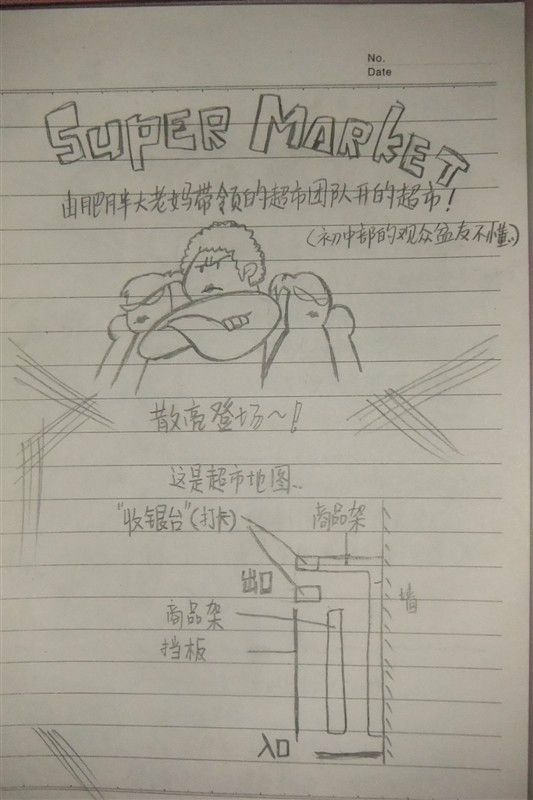 No.
Date
SUPER MARKET
由肥胖大老妈带领的超市团队开的超市！
(初中部的观众盆友不懂..)
散亮登场~！
这是超市地图..
"收银台"(打卡)
商品架
出口
墙
商品架
挡板
入口